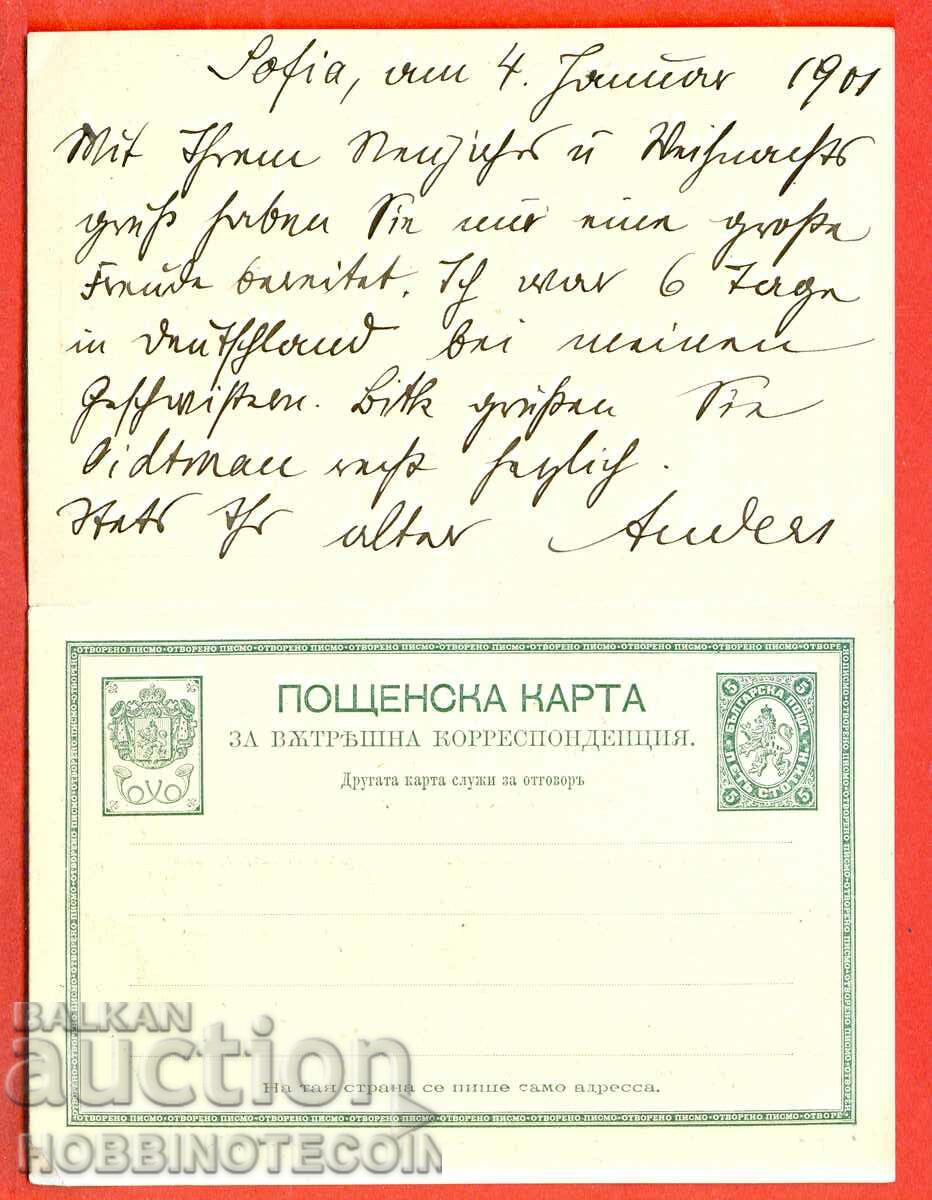 Sofia, am 4. Januar 1901
Mit Ihrem Neujahrs u Weihnachts
gruß haben Sie mir eine große
Freude bereitet. Ich war 6 Tage
in Deutschland bei meinen
Geschwistern. Bitte grüßen Sie
Oidtman recht herzlich.
Stets Ihr alter Anders
ОТВОРЕНО ПИСМО
ПОЩЕНСКА КАРТА
ЗА ВѪТРѢШНА КОРРЕСПОНДЕНЦИЯ.
Другата карта служи за отговоръ
5 5
БЪЛГАРСКА ПОЩА
ПЕТЬ СТОТИНКИ
5 5
На тая страна се пише само адресса.
BALKAN
auction
HOBBINOTECOIN